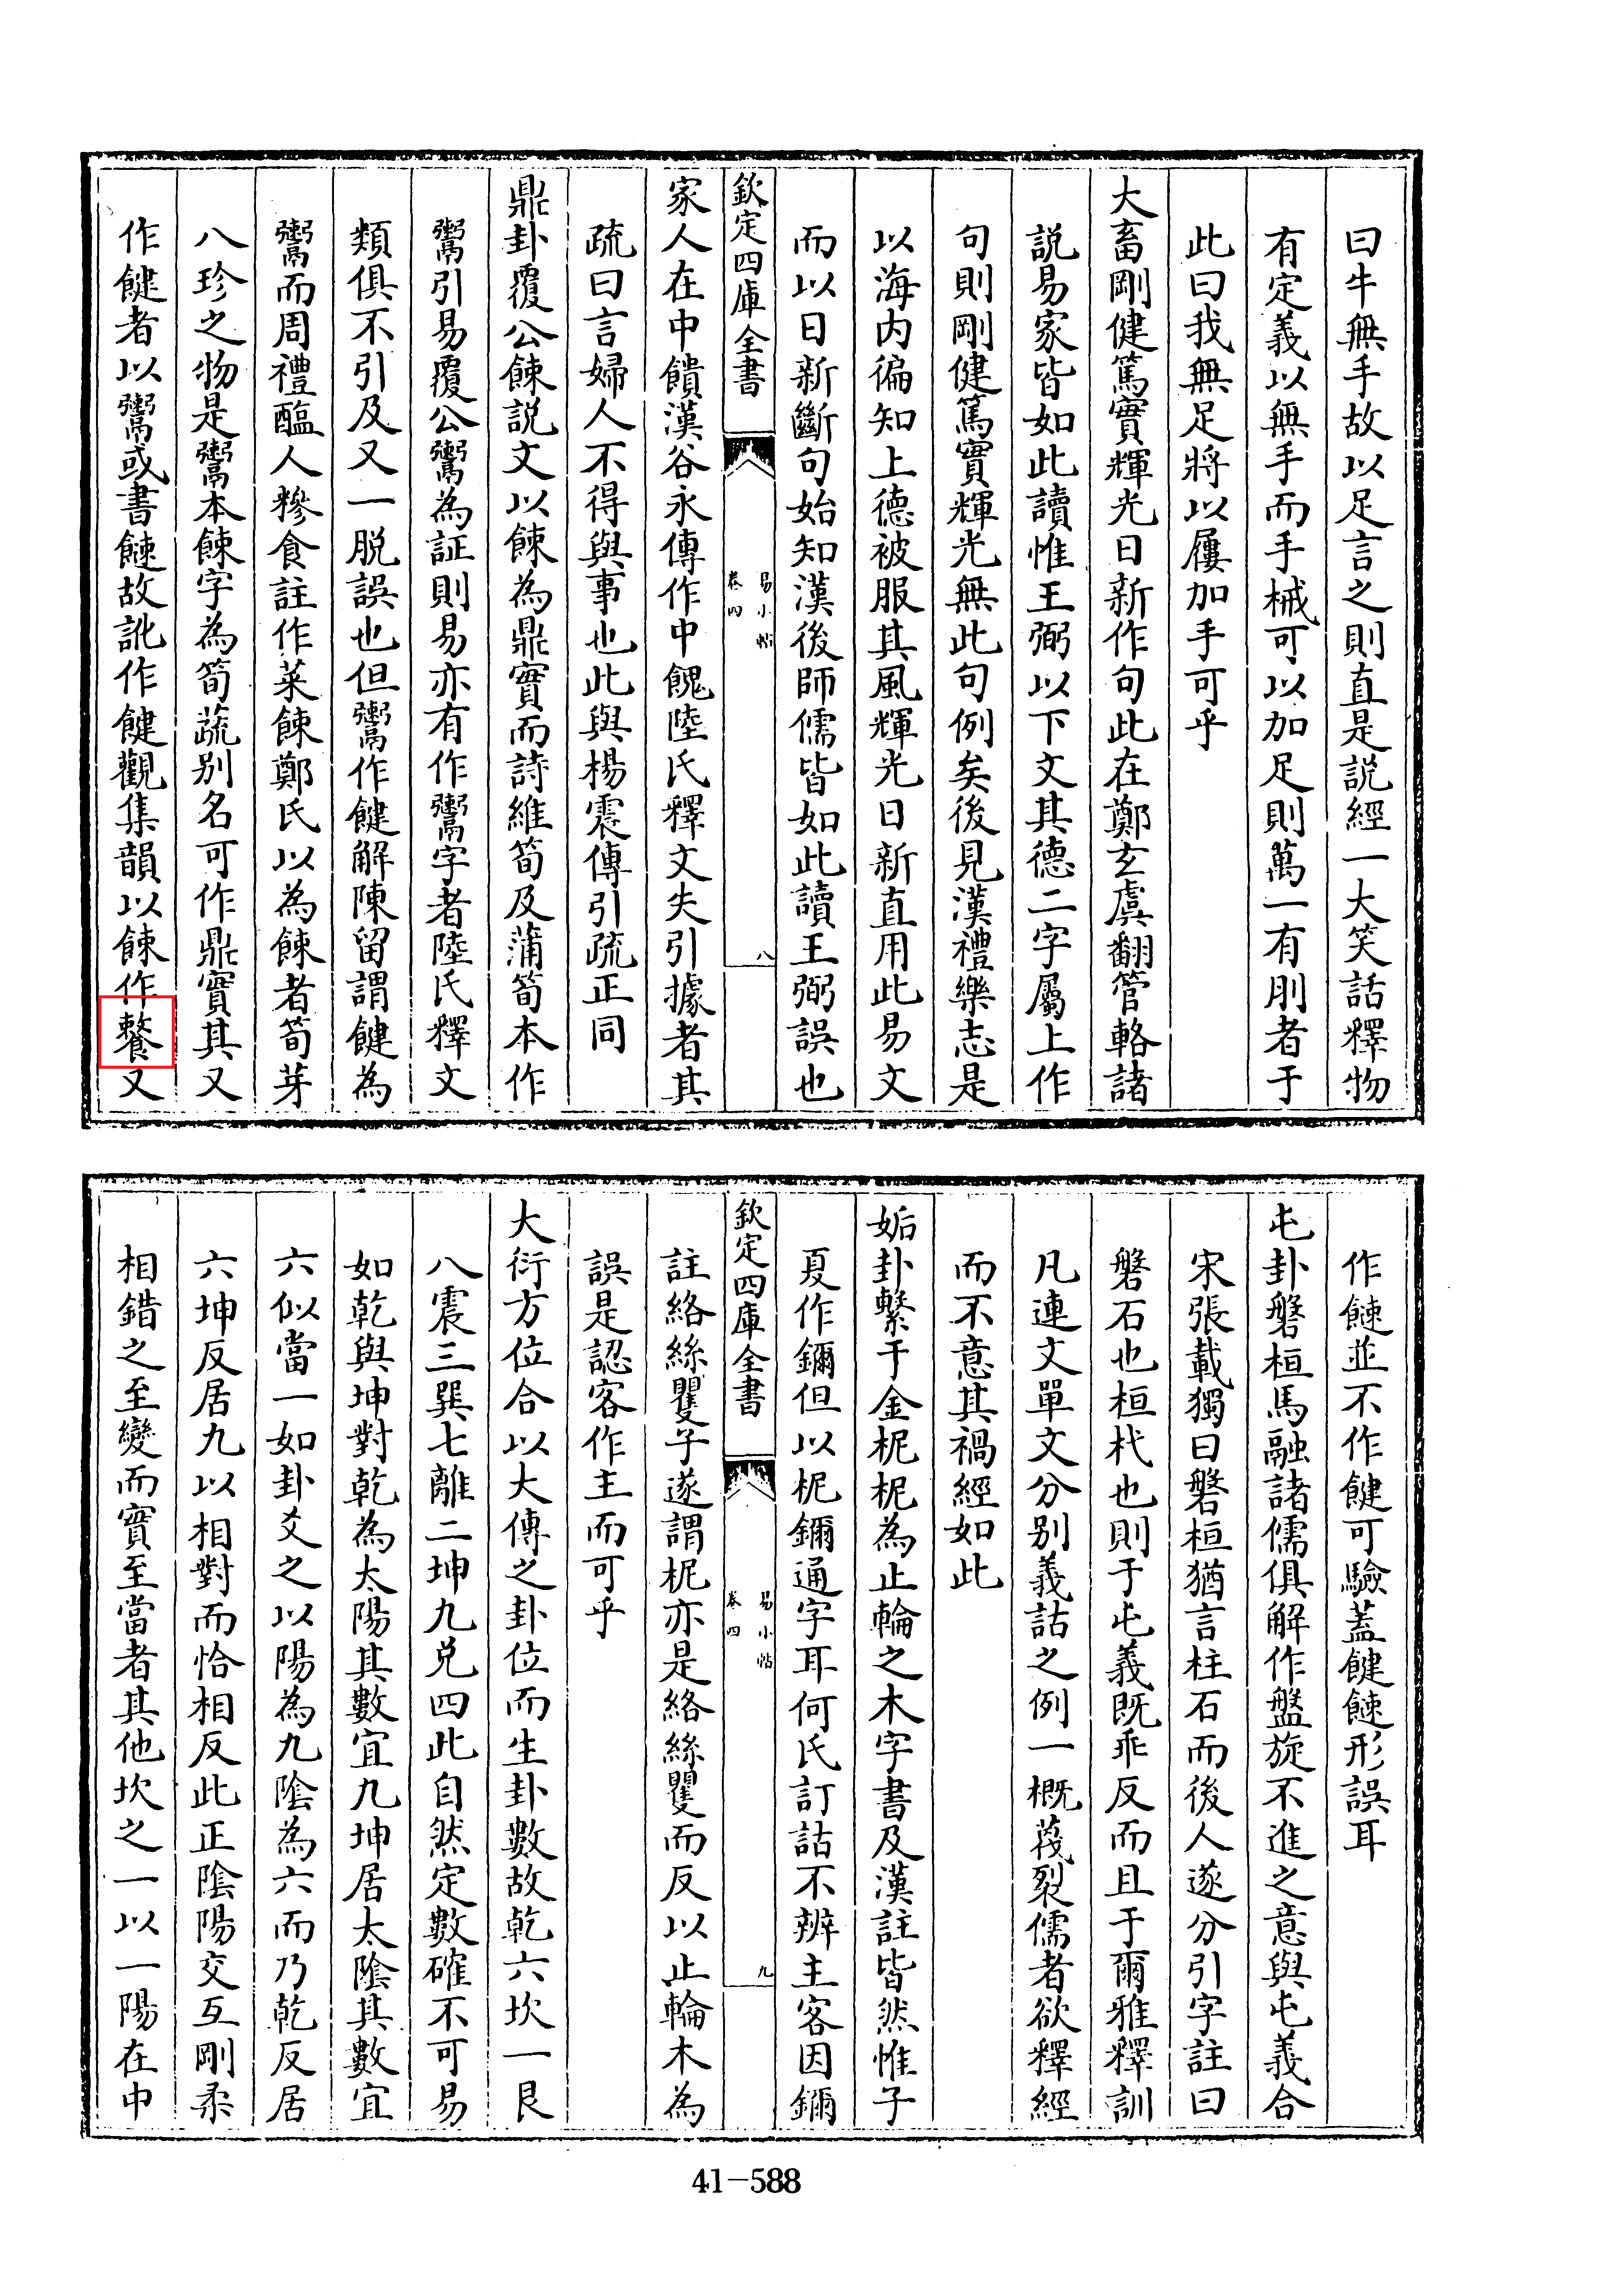 曰牛無手故以足言之則直是説經一大笑話釋物
有定義以無手而手械可以加足則萬一有刖者于
此曰我無足將以屨加手可乎
大畜剛健篤實輝光日新作句此在鄭玄虞翻管輅諸
説易家皆如此讀惟王弼以下文其德二字屬上作
句則剛健篤實輝光無此句例矣後見漢禮樂志是
以海内徧知上德被服其風輝光日新直用此易文
而以日新斷句始知漢後師儒皆如此讀王弼誤也
欽定四庫全書
易小帖
卷四
八
家人在中饋漢谷永傳作中餽陸氏釋文失引據者其
疏曰言婦人不得與事也此與楊震傳引疏正同
鼎卦覆公餗説文以餗為鼎實而詩維筍及蒲筍本作
鬻引易覆公鬻為証則易亦有作鬻字者陸氏釋文
類俱不引及又一脱誤也但鬻作餰解陳留謂餰為
鬻而周禮醢人糝食註作菜餗鄭氏以為餗者筍芽
八珍之物是鬻本餗字為筍蔬别名可作鼎實其又
作餰者以鬻或書餗故訛作餰觀集韻以餗作又
作餗並不作餰可驗蓋餰餗形誤耳
屯卦磐桓馬融諸儒俱解作盤旋不進之意與屯義合
宋張載獨曰磐桓猶言柱石而後人遂分引字註曰
磐石也桓杙也則于屯義既乖反而且于爾雅釋訓
凡連文單文分别義詁之例一概蔑裂儒者欲釋經
而不意其禍經如此
姤卦繫于金柅柅為止輪之木字書及漢註皆然惟子
夏作鑈但以柅鑈通字耳何氏訂詁不辨主客因鑈
欽定四庫全書
易小帖
卷四
九
註絡絲籰子遂謂柅亦是絡絲籰而反以止輪木為
誤是認客作主而可乎
大衍方位合以大傳之卦位而生卦數故乾六坎一艮
八震三巽七離二坤九兑四此自然定數確不可易
如乾與坤對乾為太陽其數宜九坤居太陰其數宜
六似當一如卦爻之以陽為九陰為六而乃乾反居
六坤反居九以相對而恰相反此正陰陽交互剛柔
相錯之至變而實至當者其他坎之一以一陽在中
41-588